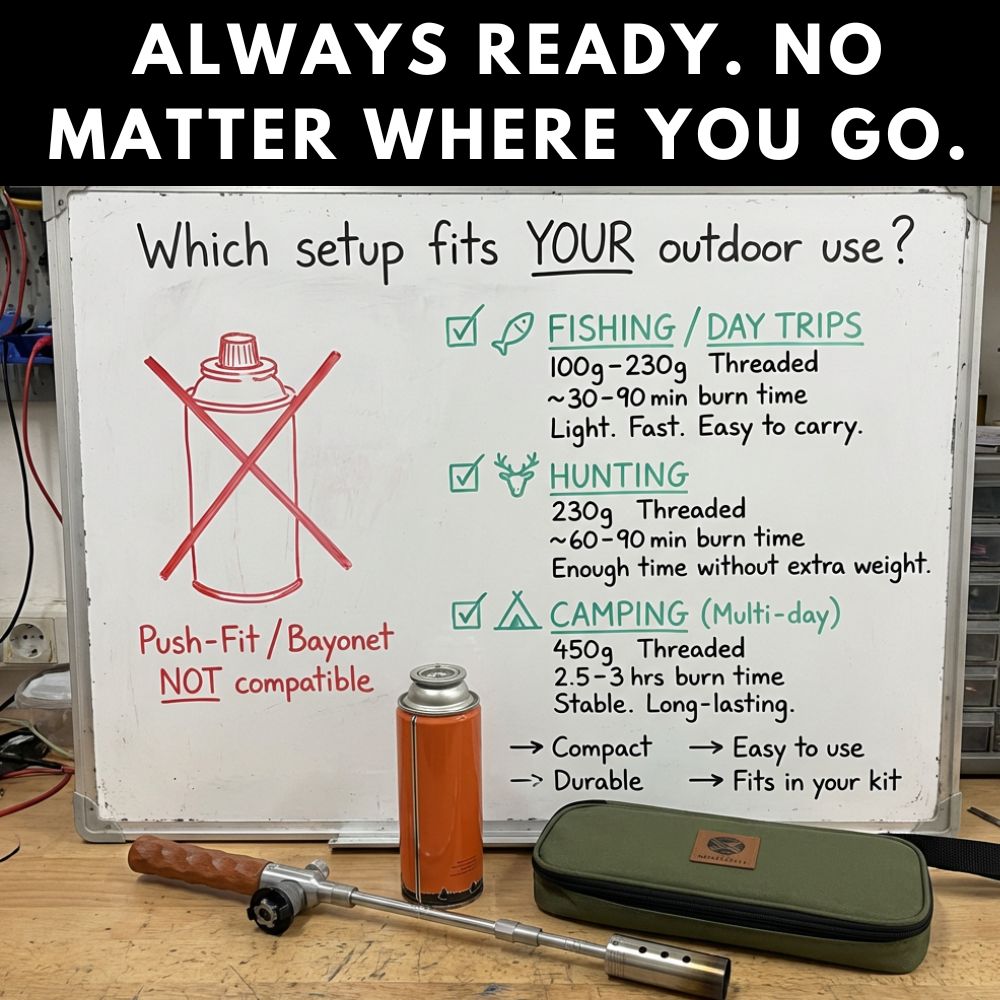 ALWAYS READY. NO
MATTER WHERE YOU GO.
Which setup fits YOUR outdoor use?
FISHING / DAY TRIPS
100g-230g Threaded
~30-90 min burn time
Light. Fast. Easy to carry.
HUNTING
230g Threaded
~60-90 min burn time
Enough time without extra weight.
CAMPING (Multi-day)
450g Threaded
2.5-3 hrs burn time
Stable. Long-lasting.
→ Compact → Easy to use
→ Durable → Fits in your kit
Push-Fit / Bayonet
NOT compatible